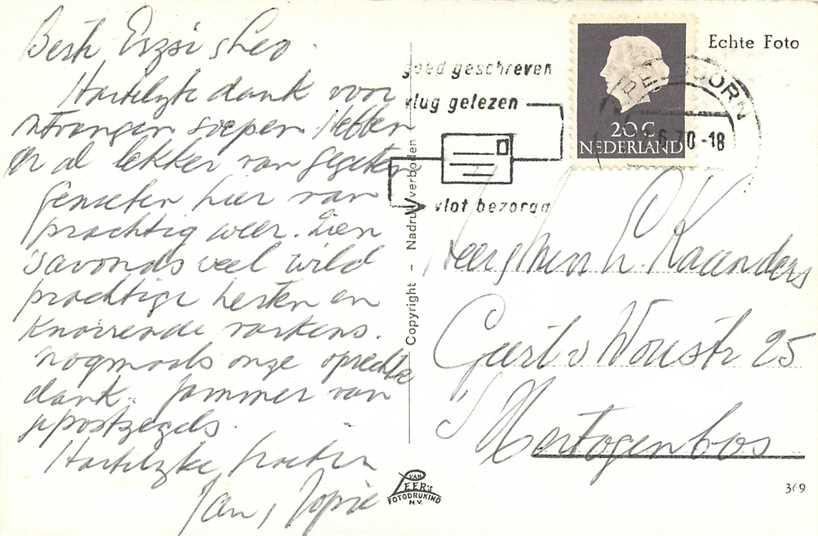 Beste Erzsi & Leo.
Hartelijke dank voor
ontvangen soepen. Hebben
er al lekker van gegeten
Genieten hier van
prachtig weer. Zien
's avonds veel wild
prachtige herten en
knorrende varkens.
nogmaals onze oprechte
dank. Jammer van
postzegels.
Hartelijke groeten
Jan, Jopie
Echte Foto
goed geschreven
vlug gelezen
vlot bezorgd
20C
NEDERLAND
6.70-18
Copyright - Nadruk verboden
L. Kaanders
Geert v Woustr 25
's Hertogenbos
VAN LEER'S
FOTODRUKIND
N.V.
369